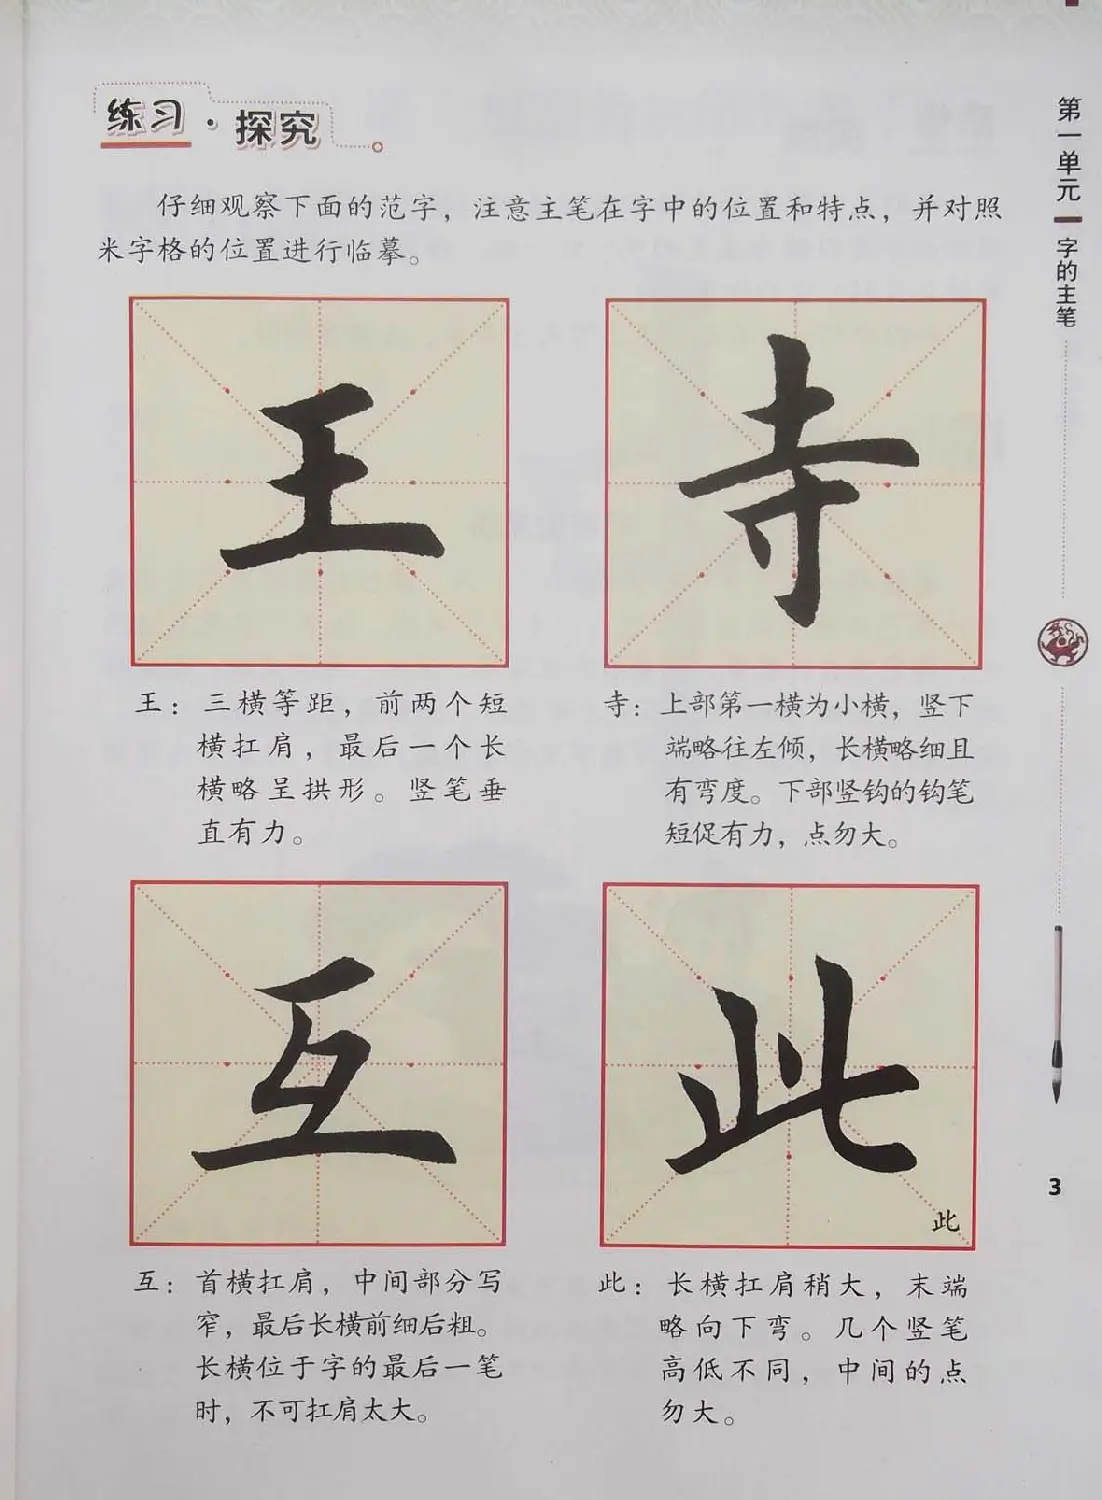 练习·探究
仔细观察下面的范字，注意主笔在字中的位置和特点，并对照
米字格的位置进行临摹。
王
寺
王：三横等距，前两个短
横扛肩，最后一个长
横略呈拱形。竖笔垂
直有力。
寺：上部第一横为小横，竖下
端略往左倾，长横略细且
有弯度。下部竖钩的钩笔
短促有力，点勿大。
互
此
此
互：首横扛肩，中间部分写
窄，最后长横前细后粗。
长横位于字的最后一笔
时，不可扛肩太大。
此：长横扛肩稍大，末端
略向下弯。几个竖笔
高低不同，中间的点
勿大。
第一单元
字的主笔
3